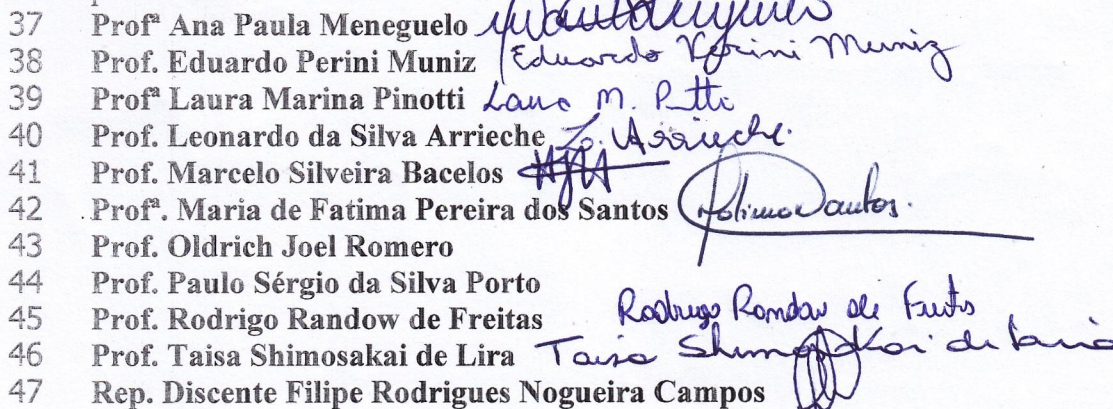 37 Profª Ana Paula Meneguelo
38 Prof. Eduardo Perini Muniz Eduardo Perini Muniz
39 Profª Laura Marina Pinotti Laura M. P
40 Prof. Leonardo da Silva Arrieche Lo. Arrieche.
41 Prof. Marcelo Silveira Bacelos
42 Profª. Maria de Fatima Pereira dos Santos Santos.
43 Prof. Oldrich Joel Romero
44 Prof. Paulo Sérgio da Silva Porto
45 Prof. Rodrigo Randow de Freitas Rodrigo Randow de Freitas
46 Prof. Taisa Shimosakai de Lira Taisa Shimosakai de Lira
47 Rep. Discente Filipe Rodrigues Nogueira Campos